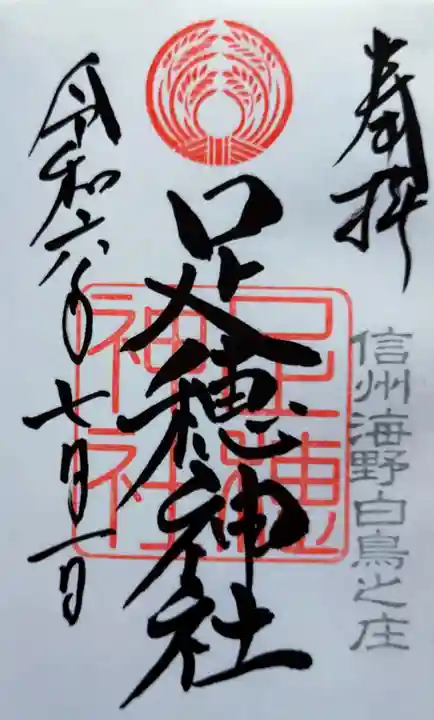 奉拝
信州海野白鳥之庄
足穂神社
足穂
神社
令和六年七月一日